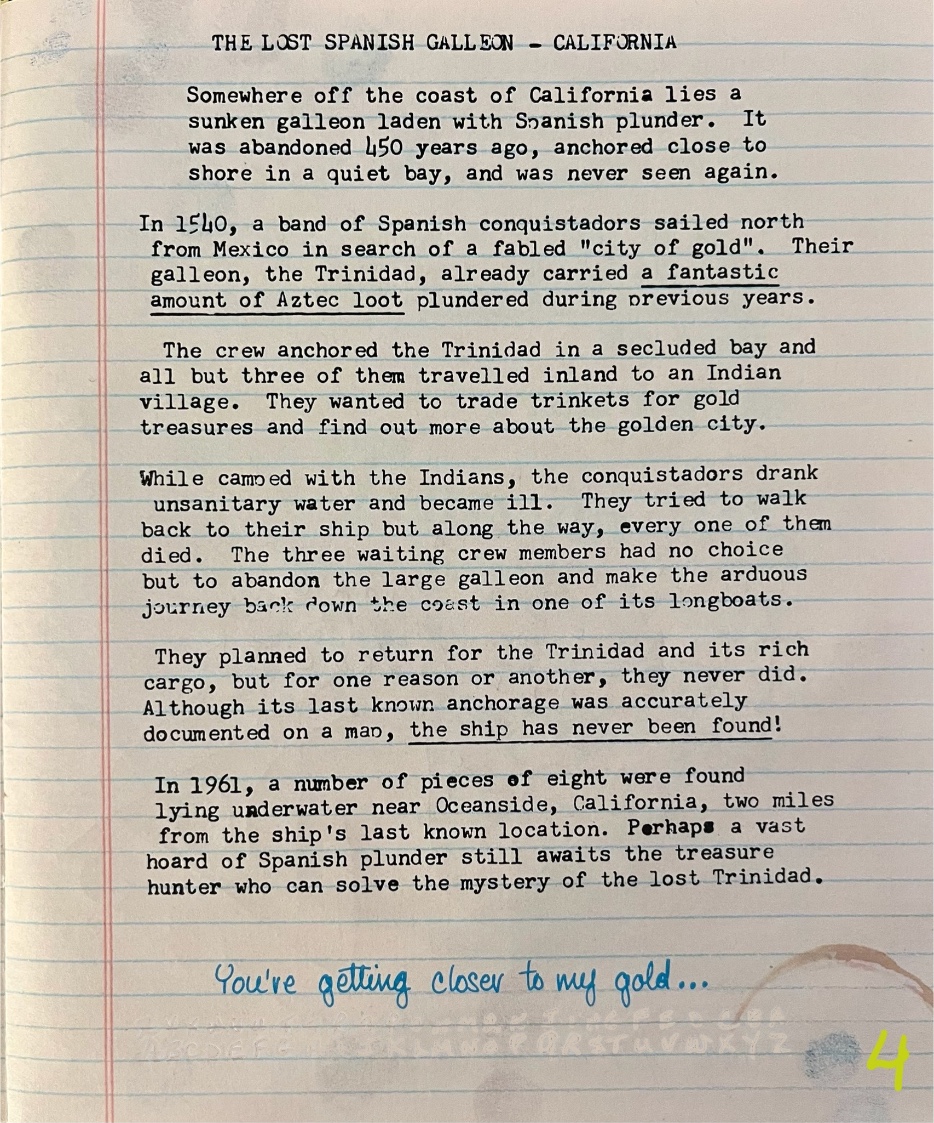 THE LOST SPANISH GALLEON - CALIFORNIA
Somewhere off the coast of California lies a
sunken galleon laden with Spanish plunder. It
was abandoned 450 years ago, anchored close to
shore in a quiet bay, and was never seen again.
In 1540, a band of Spanish conquistadors sailed north
from Mexico in search of a fabled "city of gold". Their
galleon, the Trinidad, already carried a fantastic
amount of Aztec loot plundered during previous years.
The crew anchored the Trinidad in a secluded bay and
all but three of them travelled inland to an Indian
village. They wanted to trade trinkets for gold
treasures and find out more about the golden city.
While camped with the Indians, the conquistadors drank
unsanitary water and became ill. They tried to walk
back to their ship but along the way, every one of them
died. The three waiting crew members had no choice
but to abandon the large galleon and make the arduous
journey back down the coast in one of its longboats.
They planned to return for the Trinidad and its rich
cargo, but for one reason or another, they never did.
Although its last known anchorage was accurately
documented on a map, the ship has never been found!
In 1961, a number of pieces of eight were found
lying underwater near Oceanside, California, two miles
from the ship's last known location. Perhaps a vast
hoard of Spanish plunder still awaits the treasure
hunter who can solve the mystery of the lost Trinidad.
You're getting closer to my gold...
4